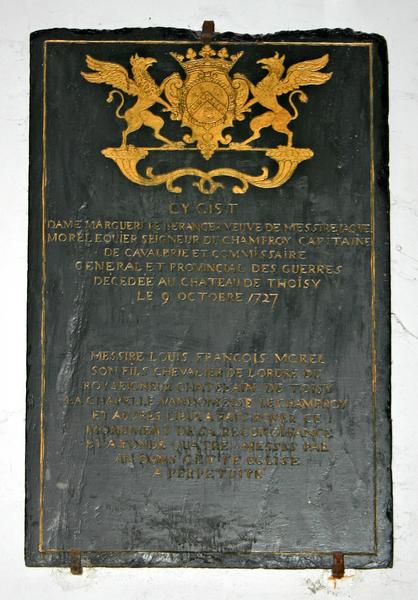 CY GIST
DAME MARGUERITE BERANGER VEUVE DE MESSIRE JAQUE
MOREL EQUIER SEIGNEUR DU CHAMFROY CAPITAINE
DE CAVALERIE ET COMMISSAIRE
GENERAL ET PROVINCIAL DES GUERRES
DECEDEE AU CHATEAU DE THOISY
LE 9 OCTOBRE 1727
MESSIRE LOUIS FRANCOIS MOREL
SON FILS CHEVALIER DE L'ORDRE DU
ROY SEIGNEUR CHATELAIN DE TOISY
LA CHAPELLE LE CHAMFROY
ET AUTRES LIEUX A FAIT POSER CE
MONUMENT DE SA RECONOISSANCE
ET A FONDE QUATRE MESSES PAR
AN DANS CETTE EGLISE
A PERPETUITE